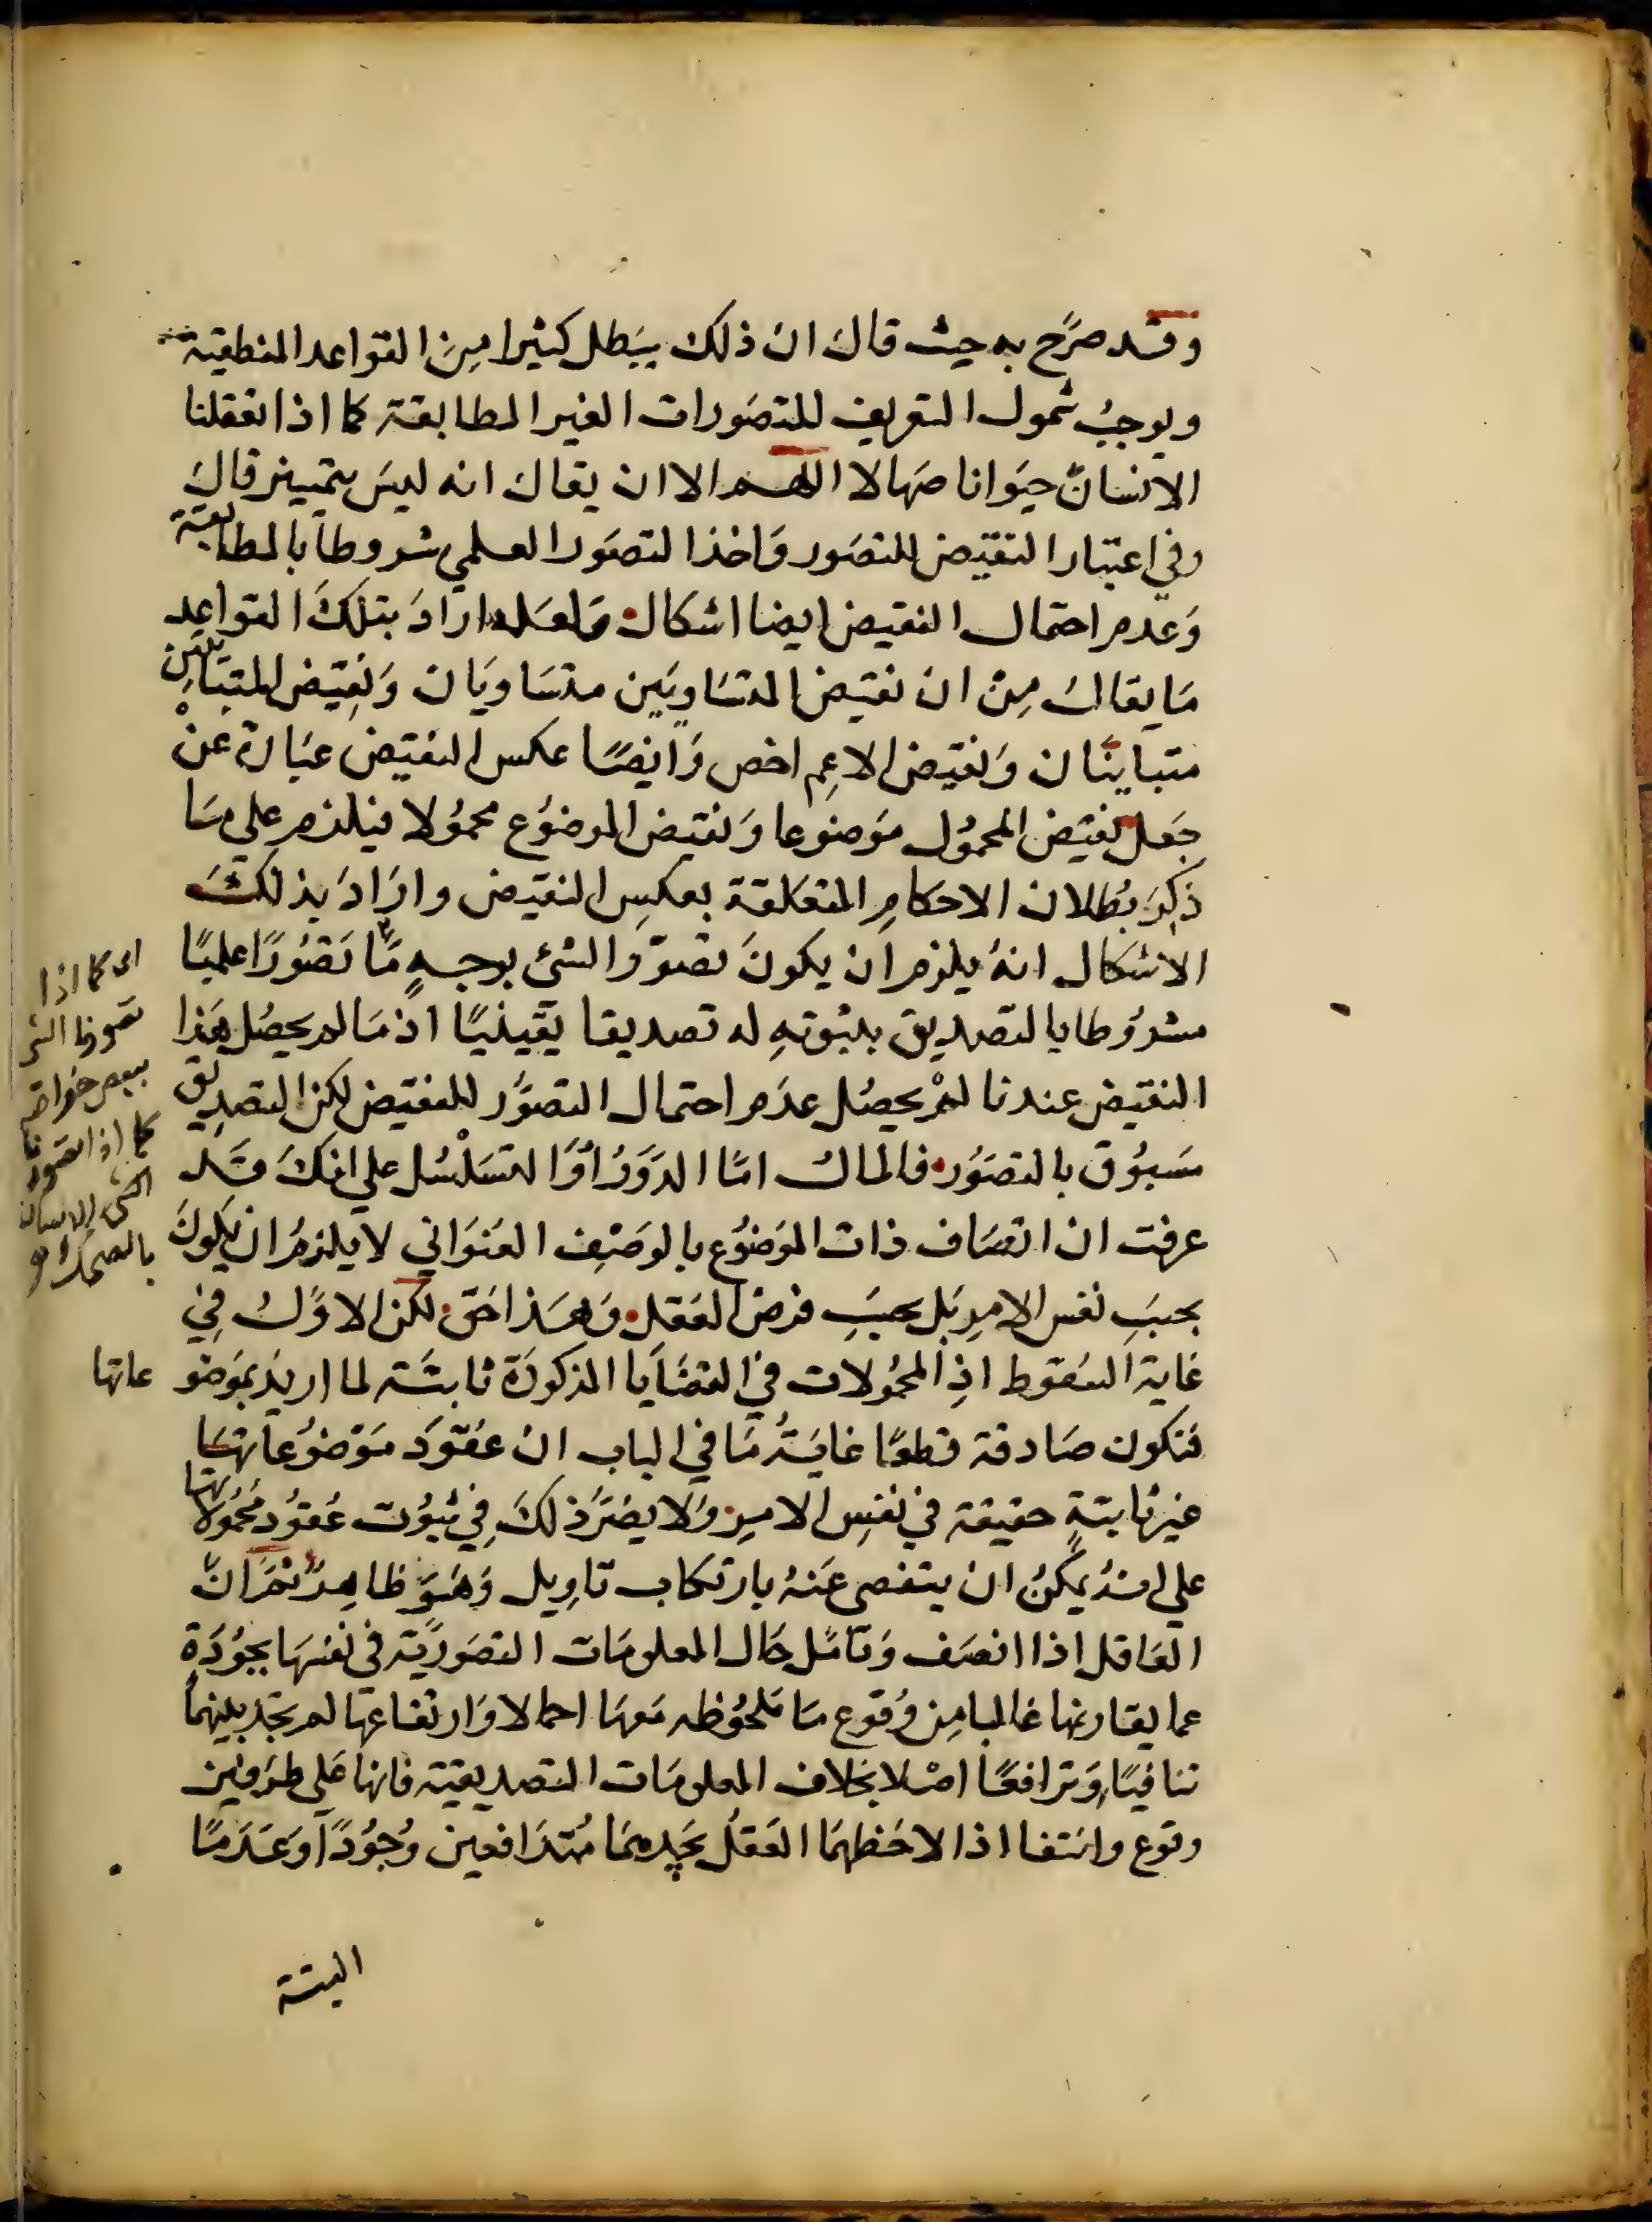 وقد صرّح به حيث قال ان ذلك يبطل كثيرا من القواعد المنطقية
ويوجب شمول التعريف للتصورات الغير المطابقة كما اذا تعقلنا
الانسان حيوانا صهالا اللهم الا ان يقال انه ليس بتمييز قال
وفي اعتبار النقيض للتصور واخذ التصور العلمي مشروطا بالمطابقة
وعدم احتمال النقيض ايضا اشكال ولعله اراد بتلك القواعد
ما يقال من ان نقيض المتساويين متساويان ونقيض المتباينين
متباينان ونقيض الاعم اخص وايضًا عكس النقيض عبارة عن
جعل نقيض المحمول موضوعا ونقيض الموضوع محمولا فيلزم علي ما
ذكر بطلان الاحكام المتعلقة بعكس النقيض واراد بذلك
الاشكال انه يلزم ان يكون تصوّر الشئ بوجهٍ مّا تصوّرًا علميًا
مشروطا بالتصديق بثبوته له تصديقا يقينيًا اذ ما لم يحصل هذا
النقيض عندنا لمْ يحصل عدم احتمال التصوّر للنقيض لكن التصديق
مسبوق بالتصوّر فالمال امّا الدور او التسلسل علي انك قد
عرفت ان اتصاف ذات الموضوع بالوصف العنواني لا يلزم ان يكون
بحسب نفس الامر بل بحسب فرض العقل وهذا حق لكن الاول في
غاية السقوط اذ المحمولات في القضايا المذكورة ثابتة لما اريد بموضوعاتها
فتكون صادقة قطعًا غاية ما في الباب ان عقود موضوعاتها
غير ثابتةٍ حقيقة في نفس الامر ولا يضرّ ذلك في ثبوت عقود محمولاتها
علي انه يمكن ان يتفصى عنه بارتكاب تاويل وهو ظاهر ثم ان
العاقل اذا انصف وتامّل حال المعلومات التصوريّة في نفسها مجرّدة
عما يقارنها غالبا من وقوع ما ملحوظه معها اجمالا وارتفاعها لم يجد بينهما
تنافيًا وترافعًا اصلا بخلاف المعلومات التصديقية فانها علي طرفين
وقوع وانتفا اذا لاحظهما العقل يجدهما متدافعين وجودًا وعدمًا
البتة
اى كما اذا
تصورنا الشئ
ببعض خواصه
كما اذا تصورنا
الانسان
بالضحك